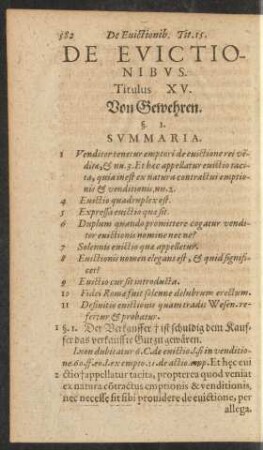 182 De Euictionib. Tit. 15.
DE EVICTIO-
NIBVS.
Titulus XV.
Von Gewehren.
§. 1.
SVMMARIA.
1 Venditor tenetur emptori de euictione rei vẽ-
ditæ, & nu. 3. Et hæc appellatur euictio taci-
ta, quia inest ex natura contractus emptio-
nis & venditionis, nu. 2.
4 Euictio quadruplex est.
5 Expressa euictio quæ sit.
6 Duplum quando promittere cogatur vendi-
tor euictionis nomine nec ne?
7 Solennis euictio quæ appelletur.
8 Euictionis nomen elegans est, & quid signifi-
cet?
9 Euictio cur sit introducta.
10 Fidei Romæ fuit solenne delubrum erectum.
11 Definitio euictionis quam tradit Wesen. re-
fertur & probatur.
1 §. 1. Der Verkauffer † ist schuldig dem Kauf-
fer das verkauffte Gut zu gewären.
l. non dubitatur 6. C. de euictio. l. si in venditio-
ne. 60. ff. eo. l. ex empto. 11. de actio. emp. Et hęc eui
2 ctio † appellatur tacita, propterea quod veniat
ex natura cõtractus emptionis & venditionis,
nec necesse sit sibi prouidere de euictione, per
allega.